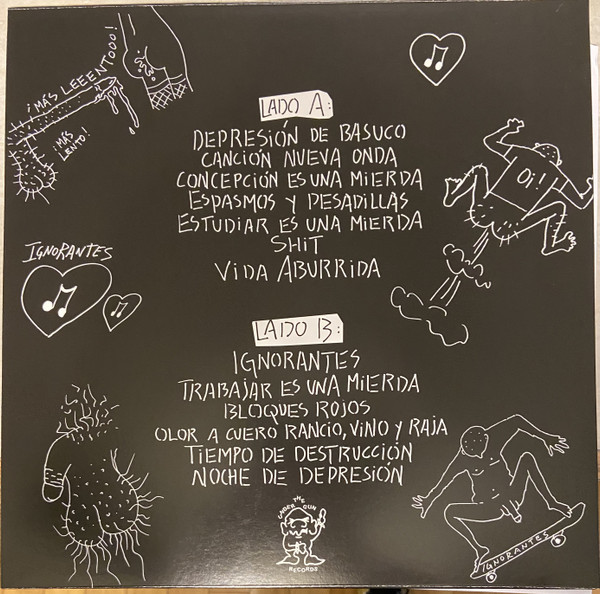 ¡MÁS LEEENTOOO!
¡MÁS LENTO!
LADO A:
DEPRESIÓN DE BASUCO
CANCIÓN NUEVA ONDA
CONCEPCIÓN ES UNA MIERDA
ESPASMOS Y PESADILLAS
ESTUDIAR ES UNA MIERDA
SHIT
VIDA ABURRIDA
Oi!
IGNORANTES
LADO B:
IGNORANTES
TRABAJAR ES UNA MIERDA
BLOQUES ROJOS
OLOR A CUERO RANCIO, VINO Y RAJA
TIEMPO DE DESTRUCCIÓN
NOCHE DE DEPRESIÓN
IGNORANTES
THE
GUN
RECORDS